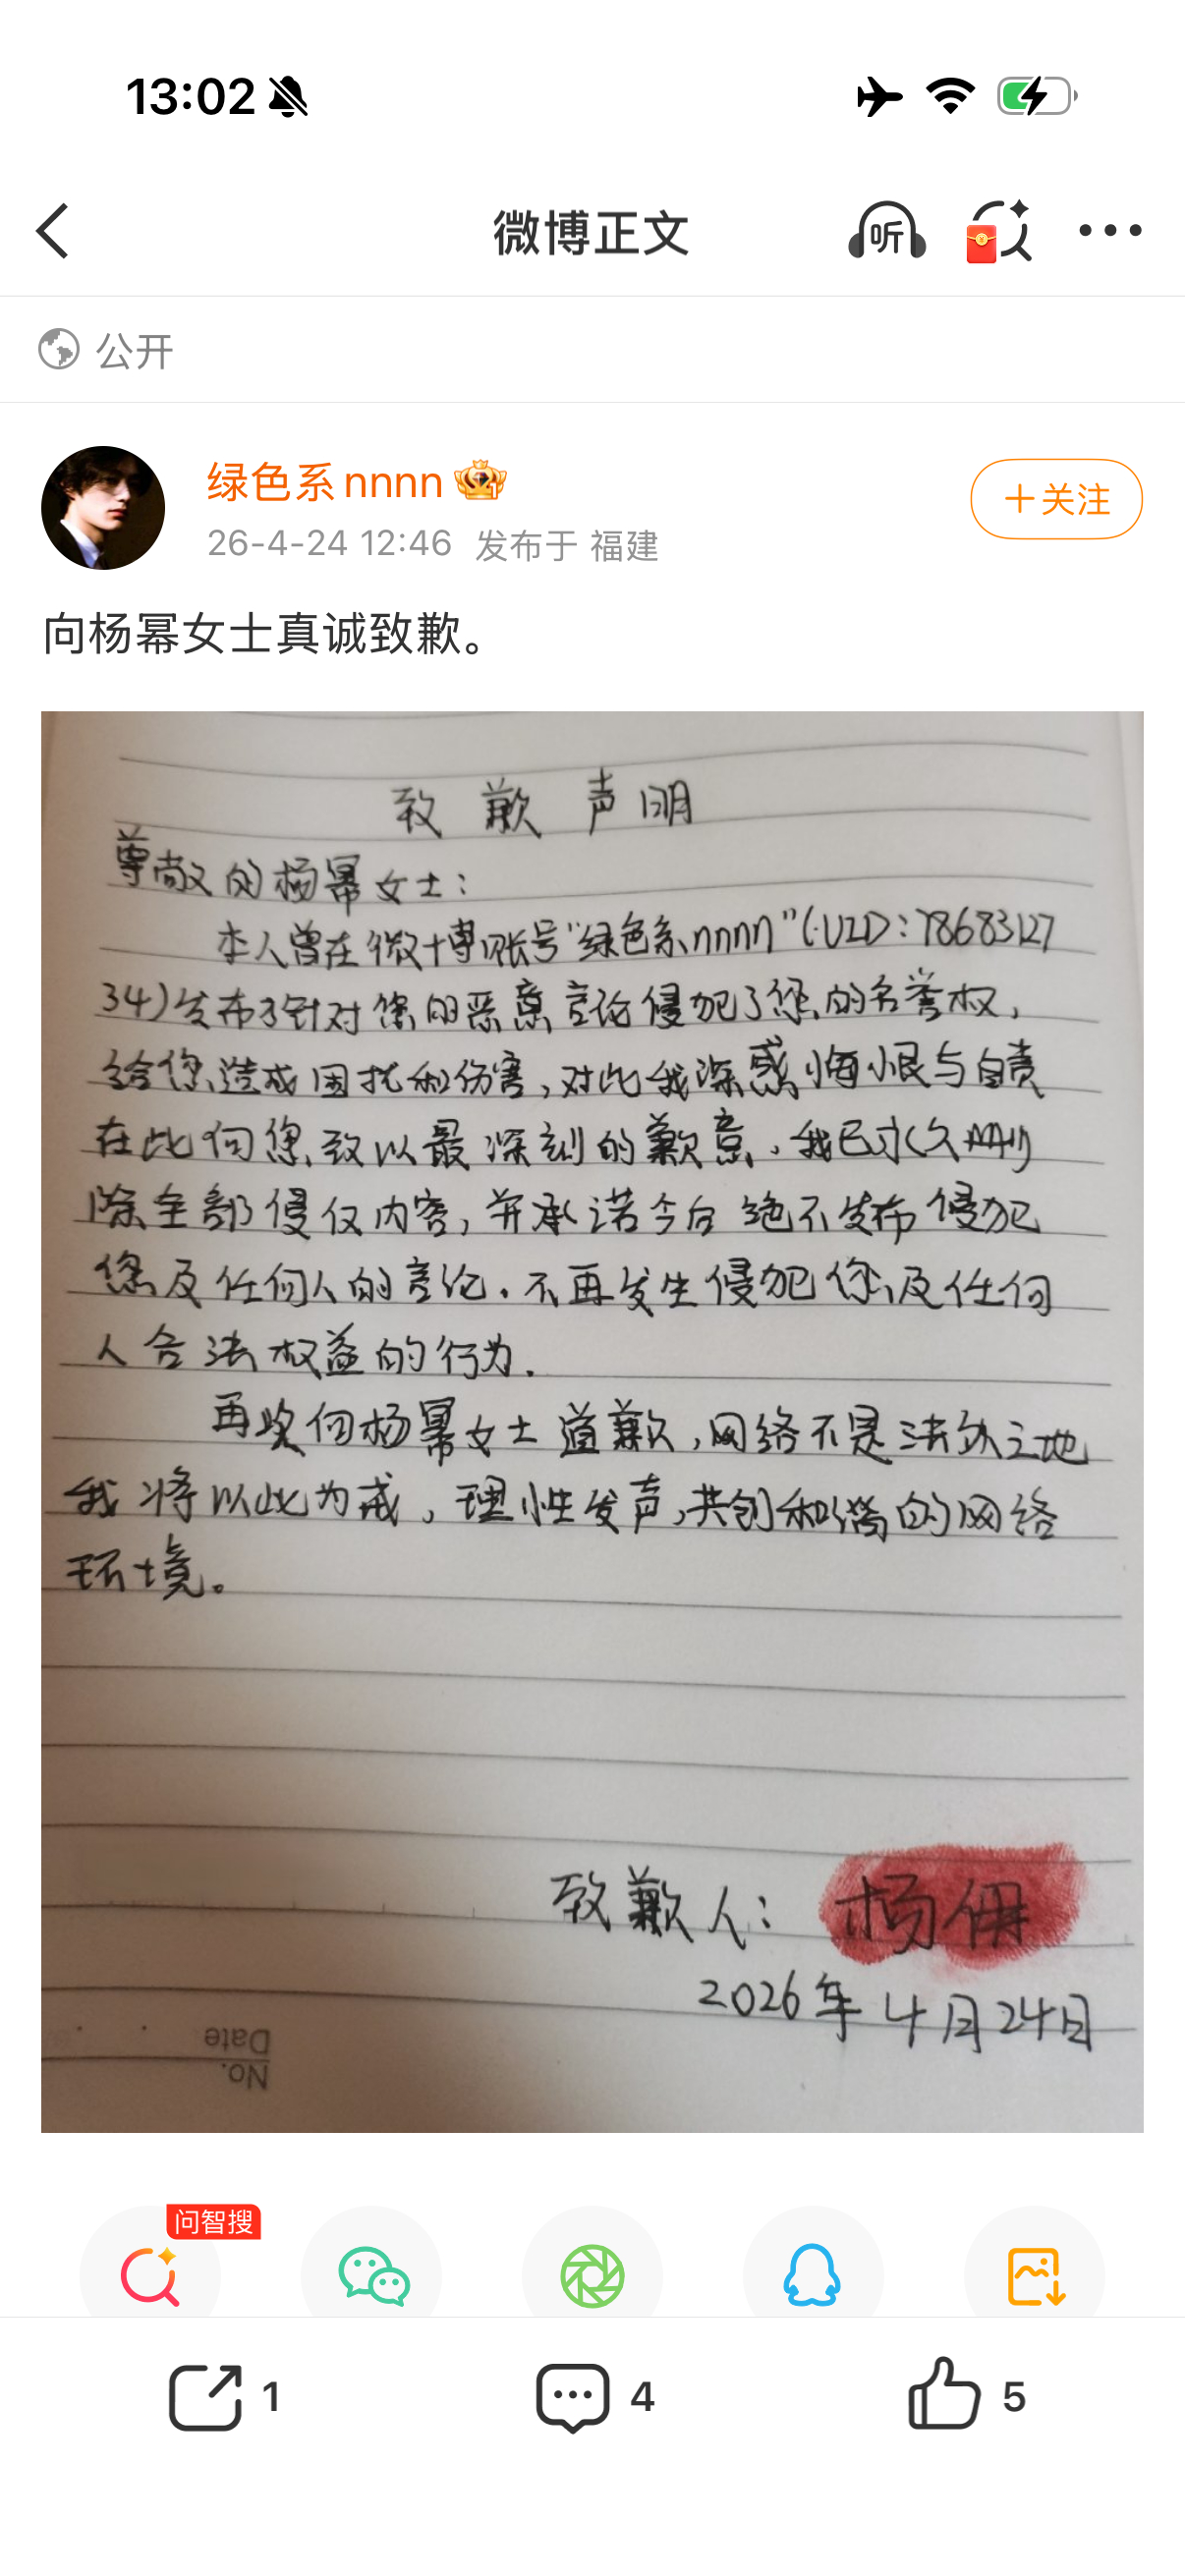 13:02
微博正文
听
公开
绿色系nnnn
26-4-24 12:46 发布于 福建
+关注
向杨幂女士真诚致歉。
致歉声明
尊敬的杨幂女士:
本人曾在微博账号“绿色系nnnn”(UID:78683127
34)发布了针对您的恶意言论侵犯了您的名誉权,
给您造成困扰和伤害,对此我深感悔恨与自责
在此向您致以最深刻的歉意.我已永久删
除全部侵权内容,并承诺今后绝不发布侵犯
您及任何人的言论.不再发生侵犯您及任何
人合法权益的行为.
再次向杨幂女士道歉,网络不是法外之地
我将以此为戒,理性发声,共创和谐的网络
环境。
致歉人: 杨佣
2026年4月24日
Date
No.
问智搜
1
4
5